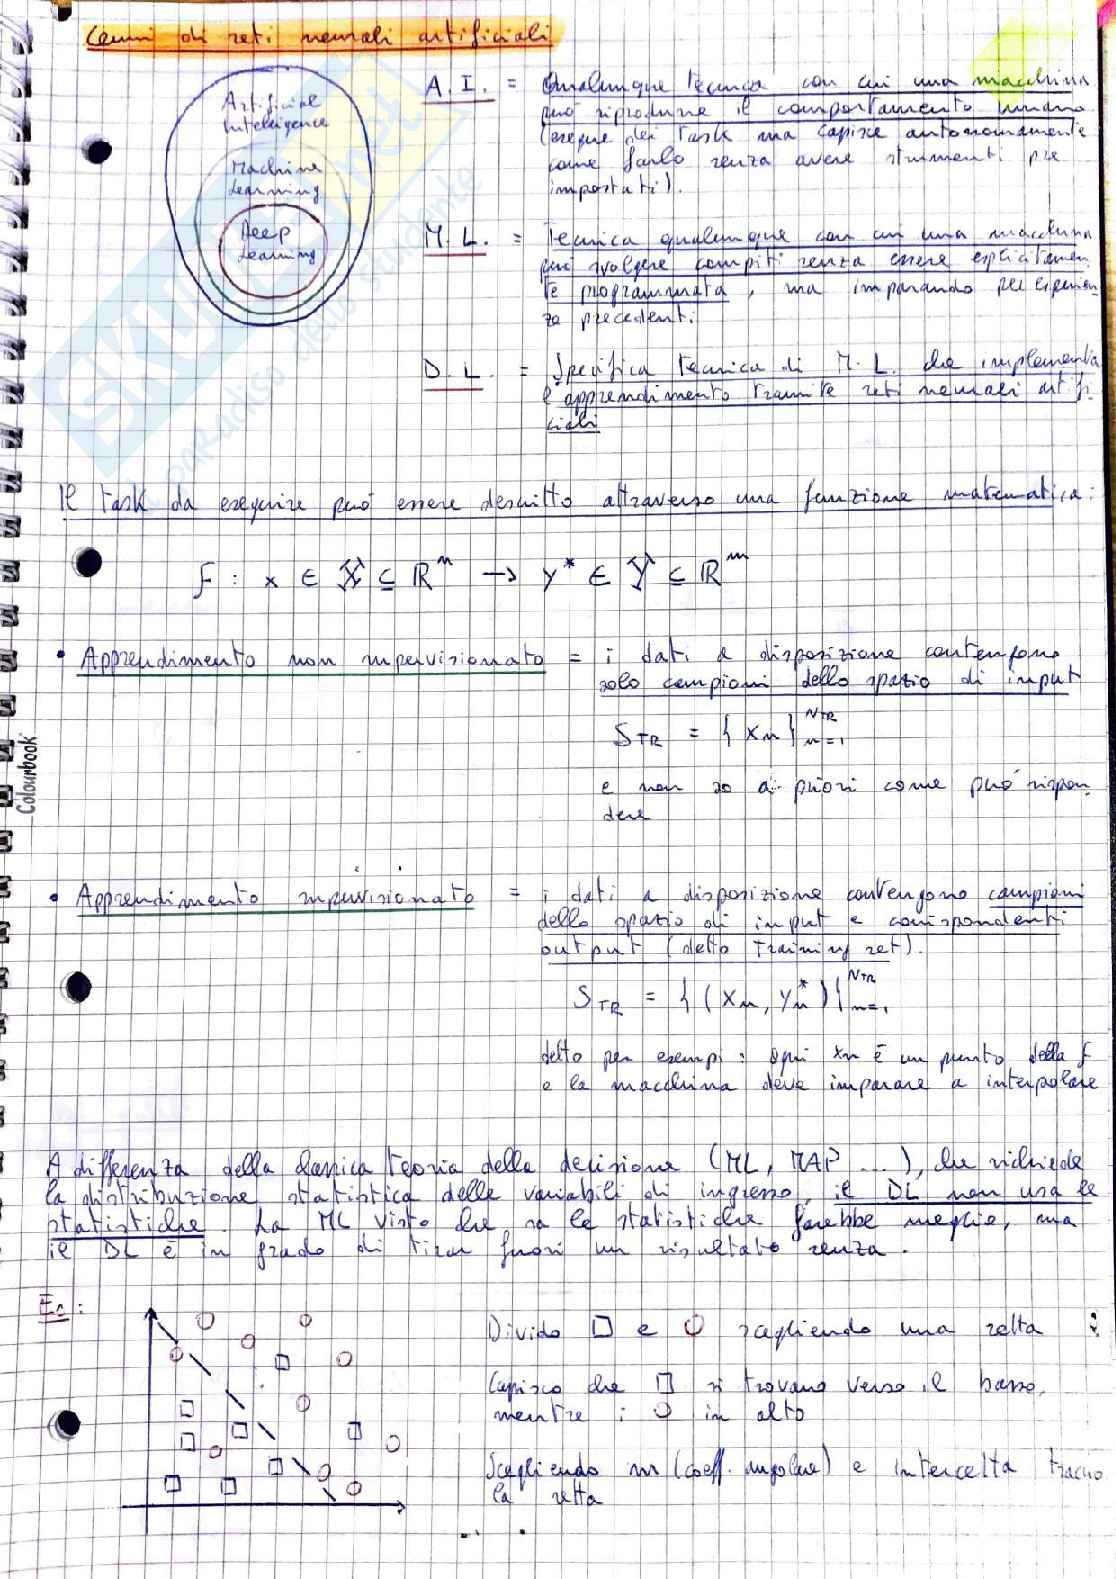 Cenni di reti neurali artificiali
Artificial
Intelligence
Machine
Learning
Deep
Learning
A.I. = Qualunque tecnica con cui una macchina
può riprodurre il comportamento umano
(esegue dei task ma capisce autonomamente
come farlo senza avere strumenti pre
impostati).
M.L. = Tecnica qualunque con cui una macchina
può svolgere compiti senza essere esplicitamen
te programmata, ma imparando per esperien
za precedenti
D.L. = Specifica tecnica di M.L. che implementa
l'apprendimento tramite reti neurali artifi
ciali
Il task da eseguire può essere descritto attraverso una funzione matematica:
f : x ∈ X ⊆ ℝⁿ → y* ∈ Y ⊆ ℝᵐ
• Apprendimento non supervisionato = i dati a disposizione contengono
solo campioni dello spazio di input
S_TR = { x_n }_{n=1}^{N_TR}
e non so a priori come può rispon
dere
• Apprendimento supervisionato = i dati a disposizione contengono campioni
dello spazio di input e corrispondenti
output (detto training set).
S_TR = { (x_n, y_n*) }_{n=1}^{N_TR}
detto per esempi: ogni x_n è un punto della f
e la macchina deve imparare a interpolare
A differenza della classica teoria della decisione (ML, MAP ...), che richiede
la distribuzione statistica delle variabili di ingresso, il DL non usa le
statistiche. La ML visto che sa le statistiche farebbe meglio, ma
il DL è in grado di tirar fuori un risultato senza.
Es:
Divido □ e ○ scegliendo una retta
Capisco che □ si trovano verso il basso,
mentre i ○ in alto
Scegliendo m (coeff. angolare) e intercetta traccio
la retta
Colourbook
SKUOLA.net
il paradiso dello studente